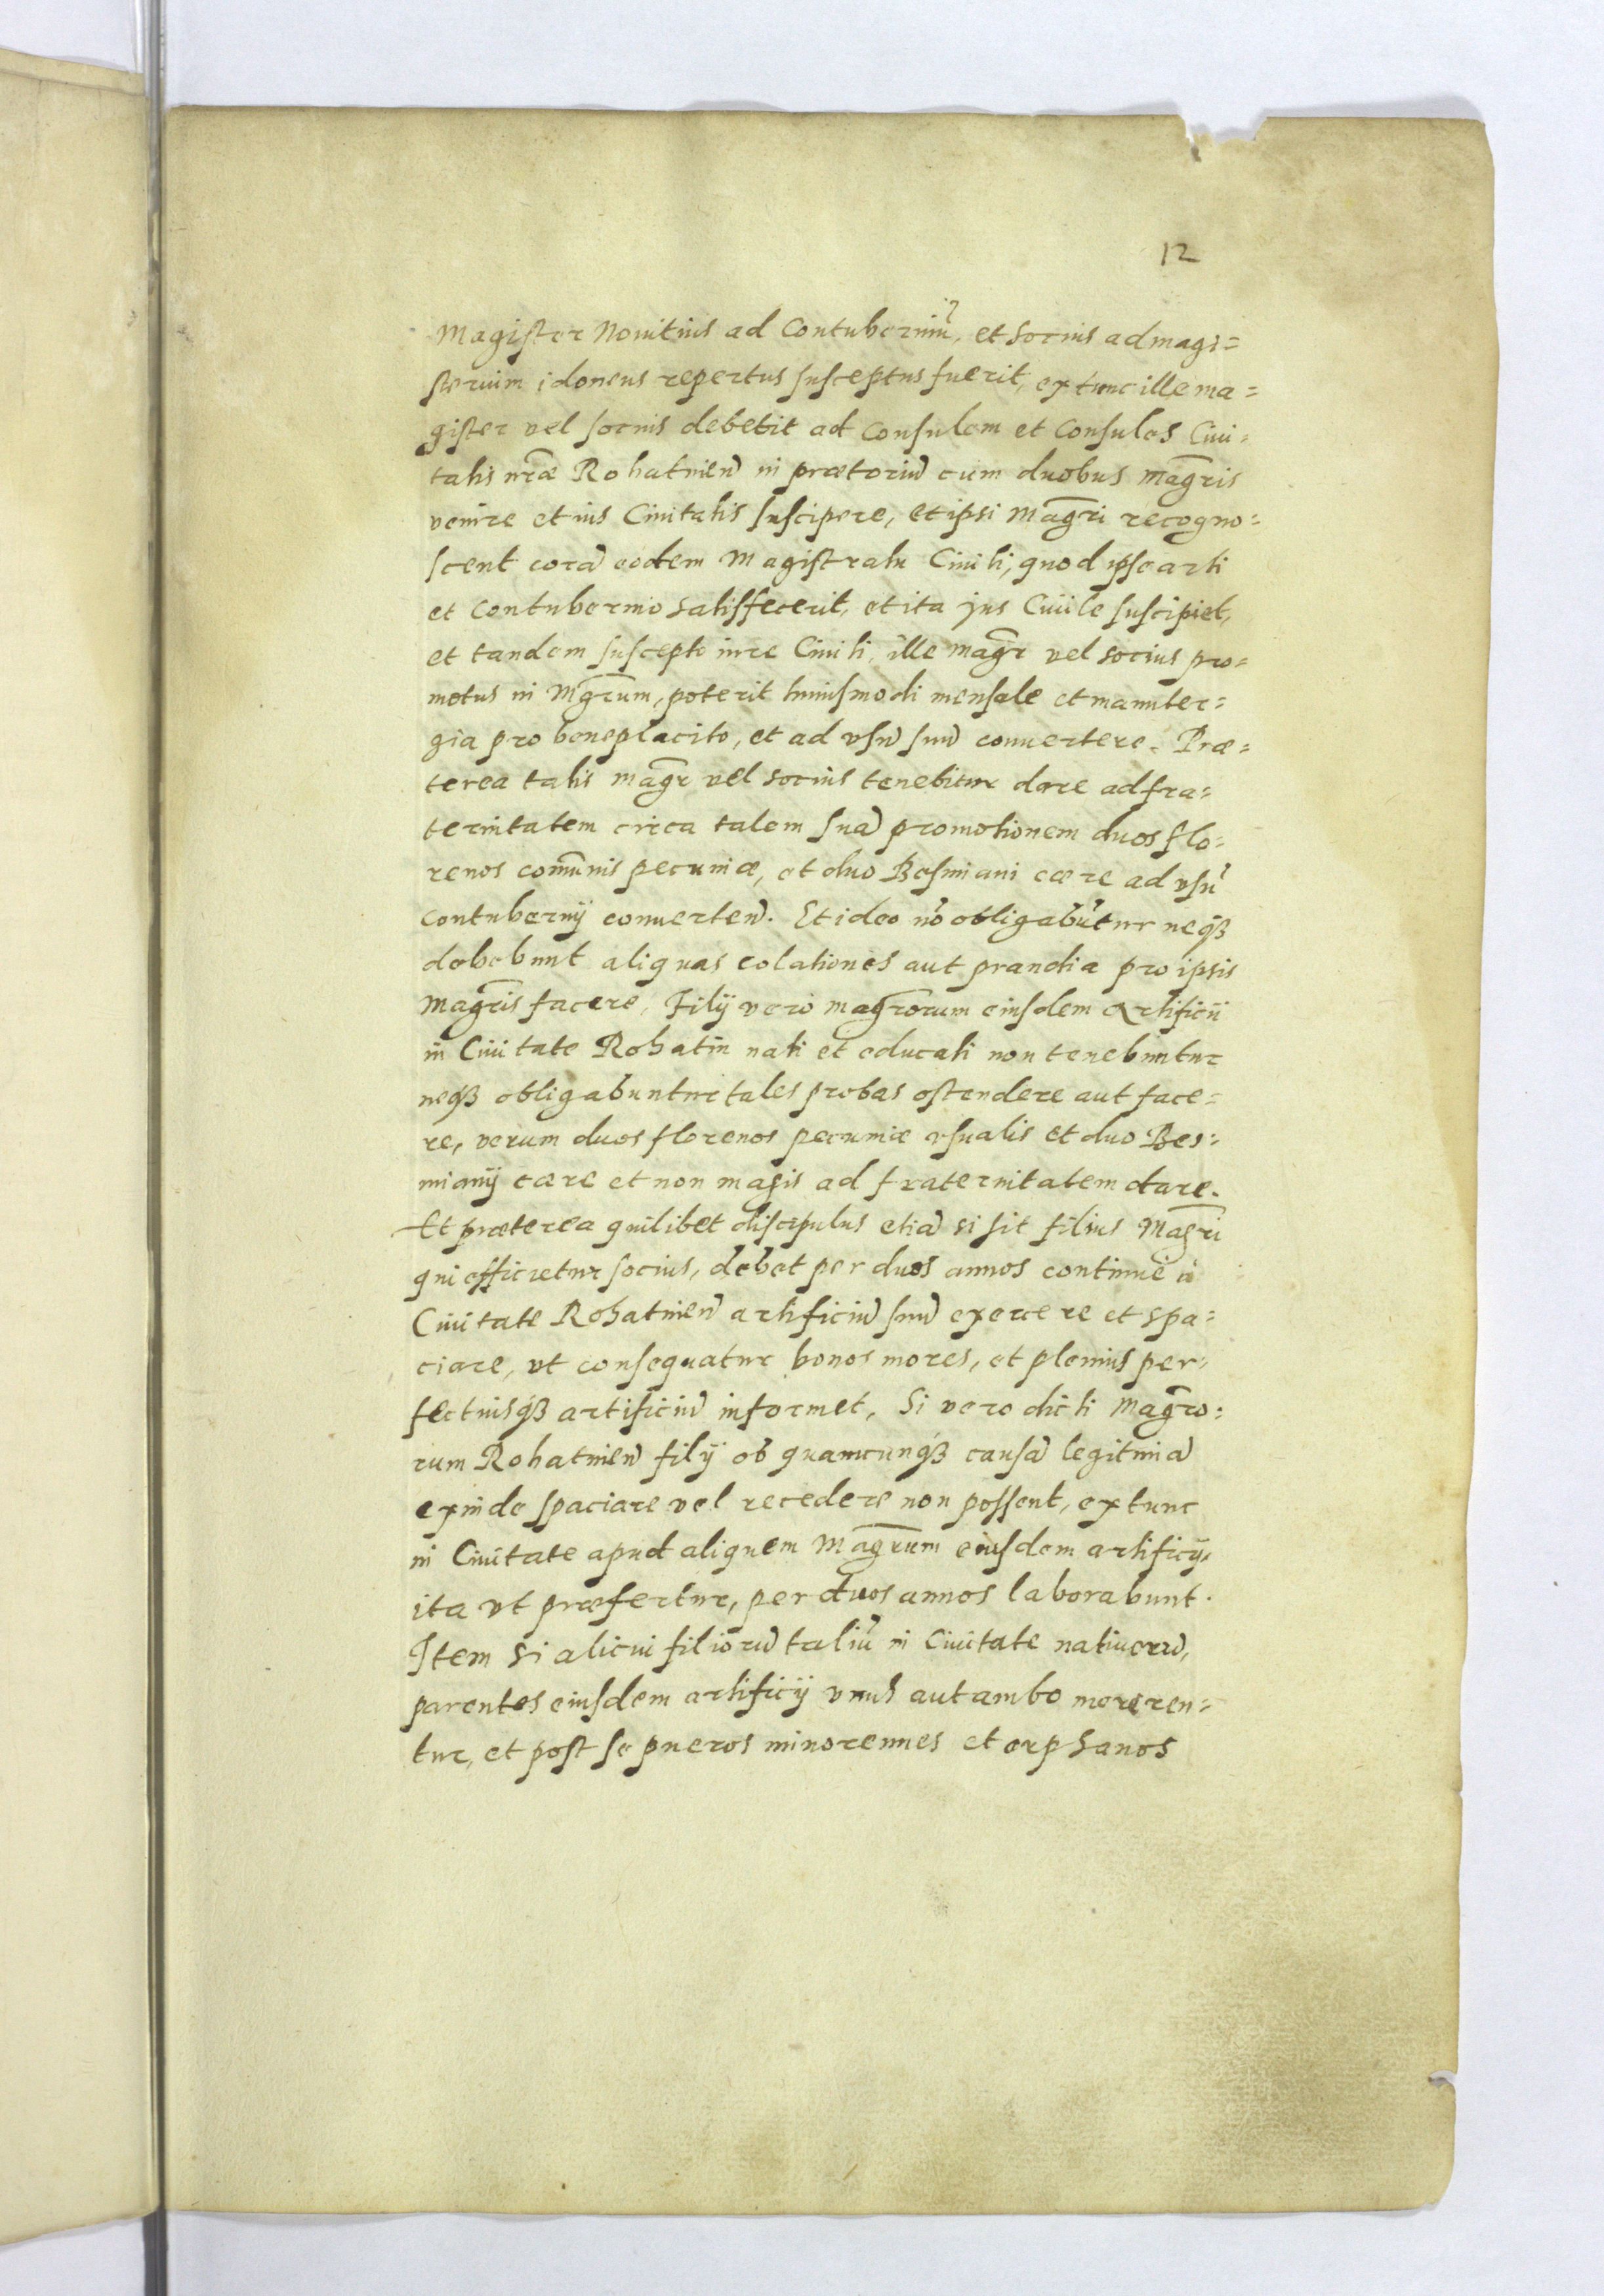 12
Magister Nouitius ad Contuberniũ, et Socius ad magi=
sterium idoneus repertus susceptus fuerit, extunc ille ma=
gister vel socius debebit ad Consulem et Consules Ciui=
tatis nr̃æ Rohatinen̄ in prætoriũ cum duobus Mag̃ris
venire et ius Ciuitatis suscipere, et ipsi Mag̃ri recogno=
scent corã eodem Magistratu Ciuili, quod ipse arti
et Contubernio satisfecerit, et ita jus Ciuile suscipiet,
et tandem suscepto iure Ciuili, ille Mag̃r vel socius pro=
motus in Mg̃rum, poterit huiusmodi mensale et manuter=
gia pro beneplacito, et ad vsũ suũ conuertere. Præ=
terea talis Mag̃r vel socius tenebitur dare ad fra=
ternitatem circa talem suã promotionem duos flo=
renos com̃unis pecuniæ, et duo Besmiani cære ad vsũ
Contubernij conuerten̄. Et ideo nõ obligabũtur neqꝫ
debebunt aliquas colationes aut prandia pro ipsis
Mag̃ris facere, Filij vero Mag̃rorum eiusdem Artificii
in Ciuitate Rohatin nati et educati non tenebuntur
neqꝫ obligabuntur tales probas ostendere aut face=
re, verum duos florenos pecuniæ vsualis et duo Bes=
mianij cære et non magis ad fraternitatem dare.
Et præterea quilibet discipulus etiã si sit filius Mag̃ri
qui efficietur socius, debet per duos annos continue à
Ciuitate Rohatinen̄ artificiũ suũ exercere et spa=
ciare, vt consequatur bonos mores, et plenius per=
fectiusqꝫ artificiũ informet, Si vero dicti Mag̃ro=
rum Rohatinen̄ filij ob quamcunqꝫ causã legitimã
exinde spaciare vel recedere non possent, extunc
in Ciuitate apud aliquem Mag̃rum eiusdem artificij,
ita vt præfertur, per duos annos laborabunt.
Item si alicui filiorũ taliũ in Ciuitate natiuorũ,
parentes eiusdem artificij vnus aut ambo moreren=
tur, et post se pueros minorennes et orphanos